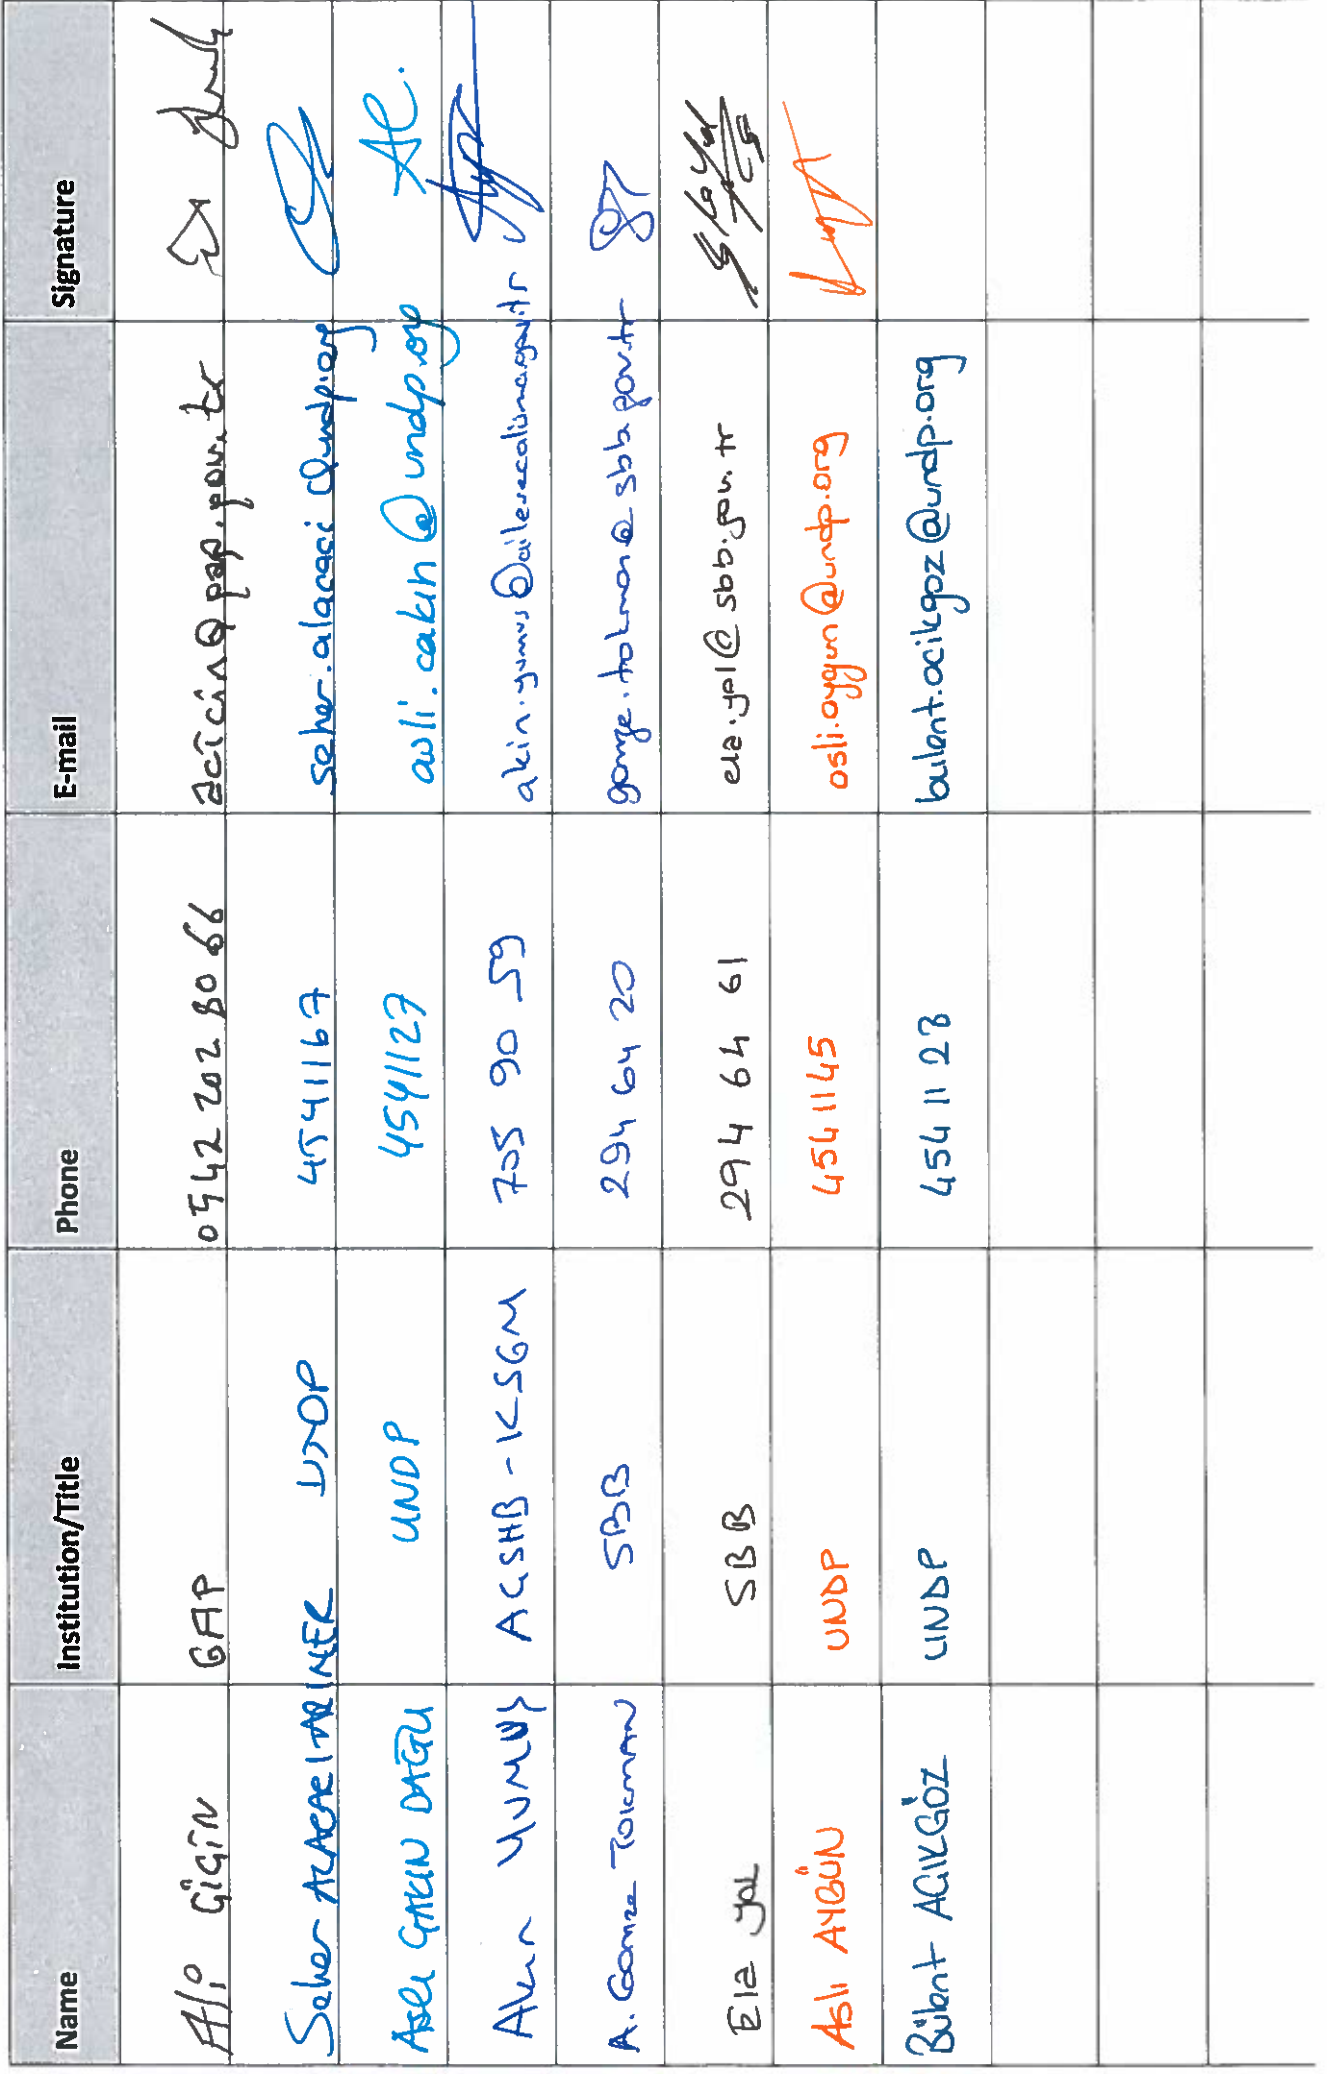 Name Institution/Title Phone E-mail Signature
Ali ÇİÇİN GAP 0542 202 80 66 acicin@gap.gov.tr
Seher ALACACI ARINER UNDP 4541167 seher.alacaci@undp.org
Aslı ÇAKIN DAĞLI UNDP 4541127 asli.cakin@undp.org
Akın YUMUŞ AÇSHB-KSGM 705 90 59 akin.yumus@ailevecalisma.gov.tr
A. Gamze TOKMAN SBB 294 64 20 gamze.tokman@sbb.gov.tr
Ela Yol SBB 294 64 61 ela.yol@sbb.gov.tr Ela Yol
Aslı AYGÜN UNDP 4541145 asli.aygun@undp.org
Bülent AÇIKGÖZ UNDP 454 11 23 bulent.acikgoz@undp.org